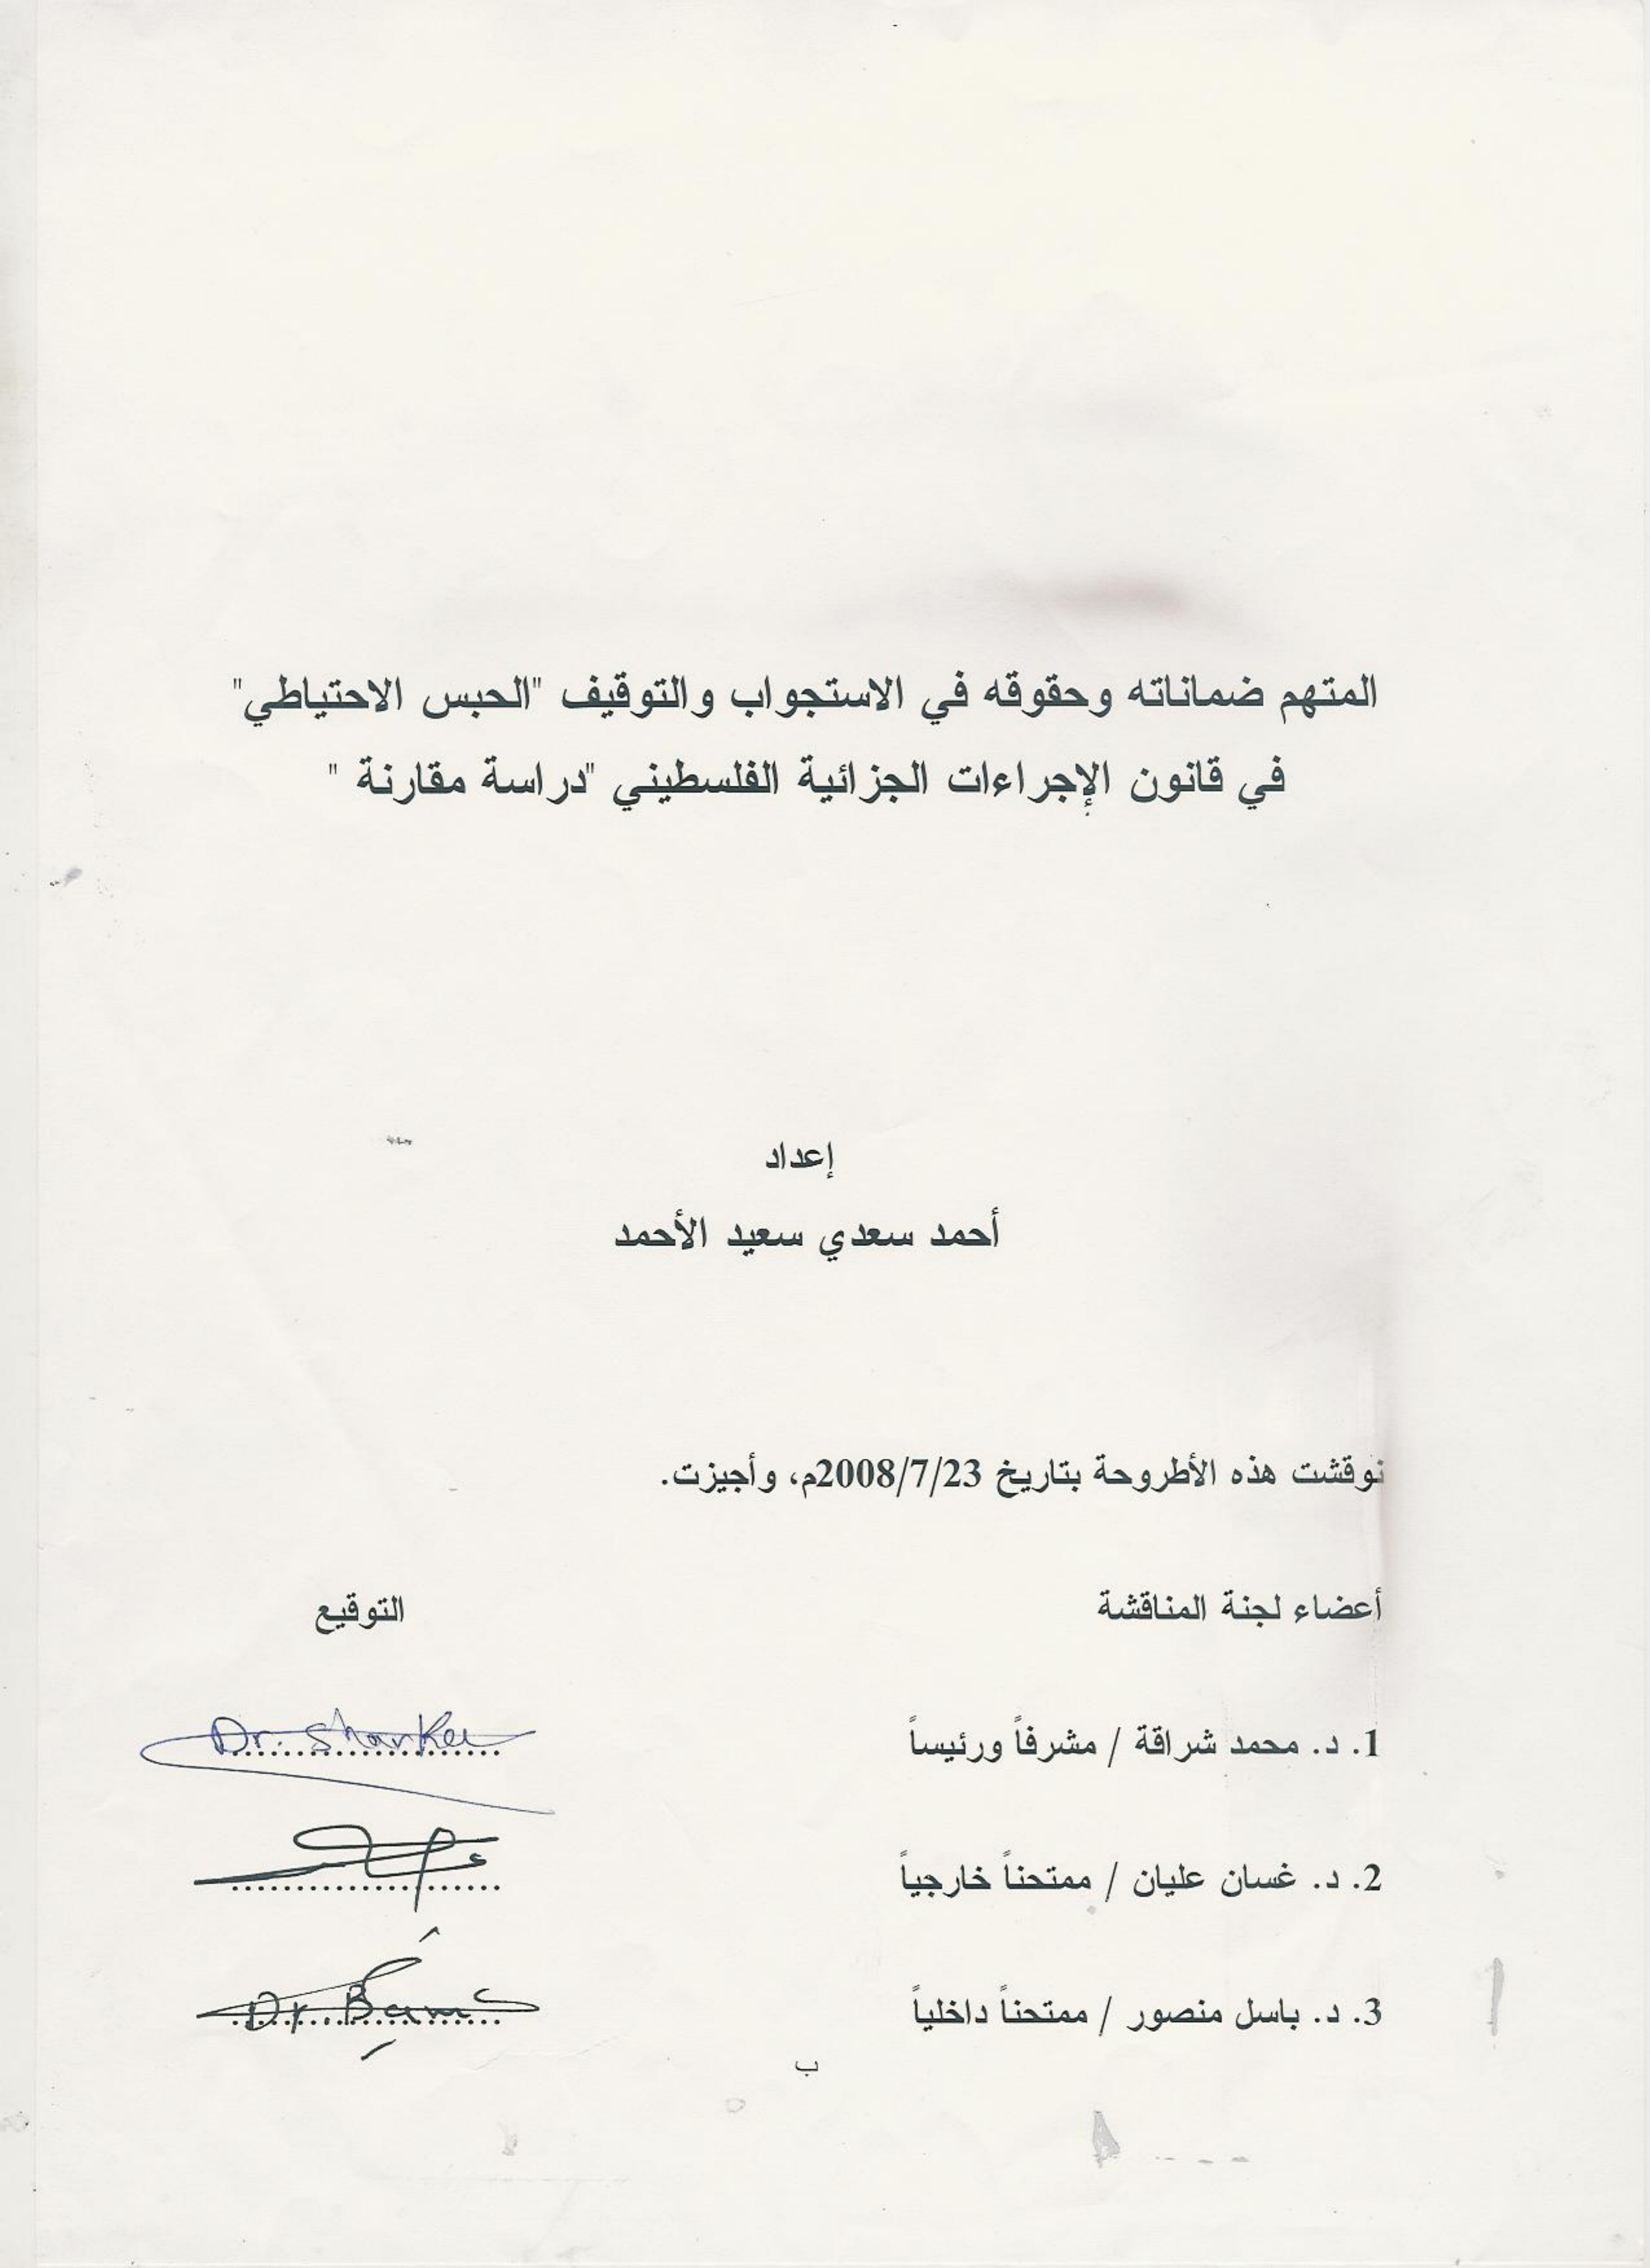 المتهم ضماناته وحقوقه في الاستجواب والتوقيف "الحبس الاحتياطي"
في قانون الإجراءات الجزائية الفلسطيني "دراسة مقارنة "
إعداد
أحمد سعدي سعيد الأحمد
نوقشت هذه الأطروحة بتاريخ 2008/7/23م، وأجيزت.
أعضاء لجنة المناقشة التوقيع
1. د. محمد شراقة / مشرفاً ورئيساً ......................
2. د. غسان عليان / ممتحناً خارجياً ......................
3. د. باسل منصور / ممتحناً داخلياً ......................
ب